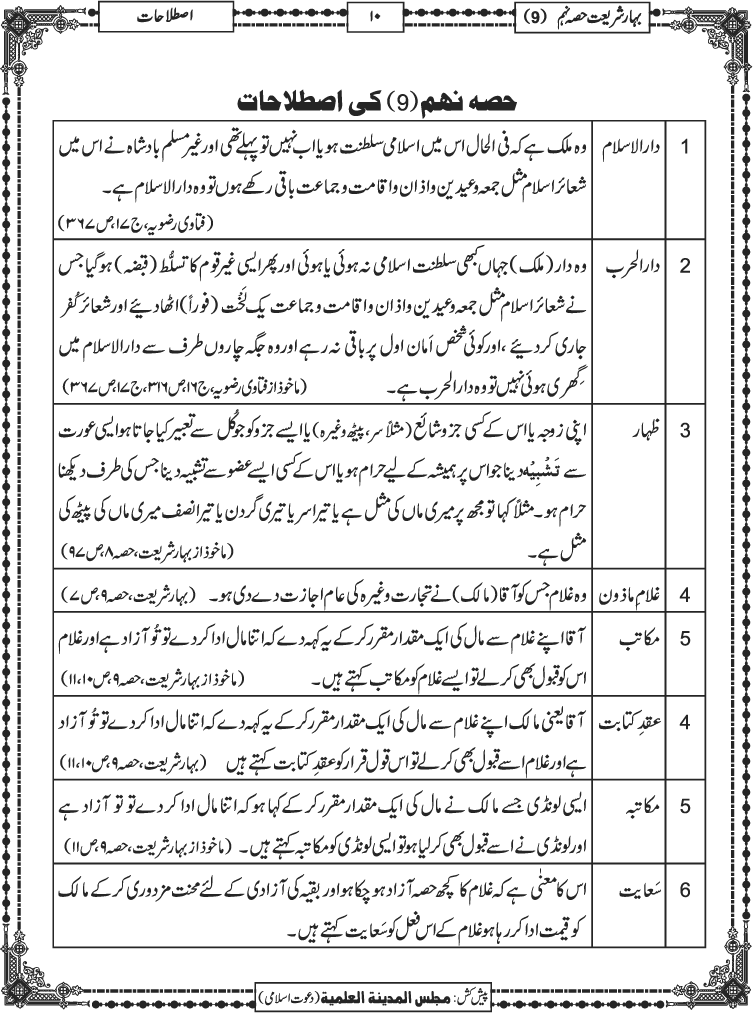 بہار شریعت حصہ نہم (9)
۱۰
اصطلاحات
حصہ نہم (9) کی اصطلاحات
1
دارالاسلام
وہ ملک ہے کہ فی الحال اس میں اسلامی سلطنت ہو یا اب نہیں تو پہلے تھی اور غیر مسلم بادشاہ نے اس میں
شعائر اسلام مثل جمعہ وعیدین واذان واقامت وجماعت باقی رکھے ہوں تو وہ دارالاسلام ہے۔
(فتاوی رضویہ، ج۱۷، ص۳۶۷)
2
دارالحرب
وہ دار (ملک) جہاں کبھی سلطنت اسلامی نہ ہوئی یا ہوئی اور پھر ایسی غیر قوم کا تسلُّط (قبضہ) ہو گیا جس
نے شعائر اسلام مثل جمعہ وعیدین واذان واقامت وجماعت یک لَخْت (فوراً) اٹھا دیئے اور شعائر کُفر
جاری کر دیئے، اور کوئی شخص اَمان اول پر باقی نہ رہے اور وہ جگہ چاروں طرف سے دارالاسلام میں
گِھری ہوئی نہیں تو وہ دارالحرب ہے۔ (ماخوذ از فتاوی رضویہ، ج۱۶، ص۳۱۶، ج۱۷، ص۳۶۷)
3
ظہار
اپنی زوجہ یا اس کے کسی جزوِ شائع (مثلاً سر، پیٹھ وغیرہ) یا ایسے جزو کو جو کُل سے تعبیر کیا جاتا ہو ایسی عورت
سے تَشْبِیْہ دینا جو اس پر ہمیشہ کے لیے حرام ہو یا اس کے کسی ایسے عضو سے تشبیہ دینا جس کی طرف دیکھنا
حرام ہو۔ مثلاً کہا تو مجھ پر میری ماں کی مثل ہے یا تیرا سر یا تیری گردن یا تیرا نصف میری ماں کی پیٹھ کی
مثل ہے۔ (ماخوذ از بہار شریعت، حصہ ۸، ص۹۷)
4
غلامِ ماذون
وہ غلام جس کو آقا (مالک) نے تجارت وغیرہ کی عام اجازت دے دی ہو۔ (بہار شریعت، حصہ ۹، ص۷)
5
مکاتب
آقا اپنے غلام سے مال کی ایک مقدار مقرر کر کے یہ کہہ دے کہ اتنا مال ادا کر دے تو تُو آزاد ہے اور غلام
اس کو قبول بھی کر لے تو ایسے غلام کو مکاتب کہتے ہیں۔ (ماخوذ از بہار شریعت، حصہ ۹، ص۱۰، ۱۱)
4
عقدِ کتابت
آقا یعنی مالک اپنے غلام سے مال کی ایک مقدار مقرر کر کے یہ کہہ دے کہ اتنا مال ادا کر دے تو تُو آزاد
ہے اور غلام اسے قبول بھی کر لے تو اس قول قرار کو عقدِ کتابت کہتے ہیں (بہار شریعت، حصہ ۹، ص۱۰، ۱۱)
5
مکاتبہ
ایسی لونڈی جسے مالک نے مال کی ایک مقدار مقرر کر کے کہا ہو کہ اتنا مال ادا کر دے تو تو آزاد ہے
اور لونڈی نے اسے قبول بھی کر لیا ہو تو ایسی لونڈی کو مکاتبہ کہتے ہیں۔ (ماخوذ از بہار شریعت، حصہ ۹، ص۱۱)
6
سَعایت
اس کا معنٰی ہے کہ غلام کا کچھ حصہ آزاد ہو چکا ہو اور بقیہ کی آزادی کے لئے محنت مزدوری کر کے مالک
کو قیمت ادا کر رہا ہو غلام کے اس فعل کو سَعایت کہتے ہیں۔
پیش کش: مجلس المدینۃ العلمیۃ (دعوت اسلامی)